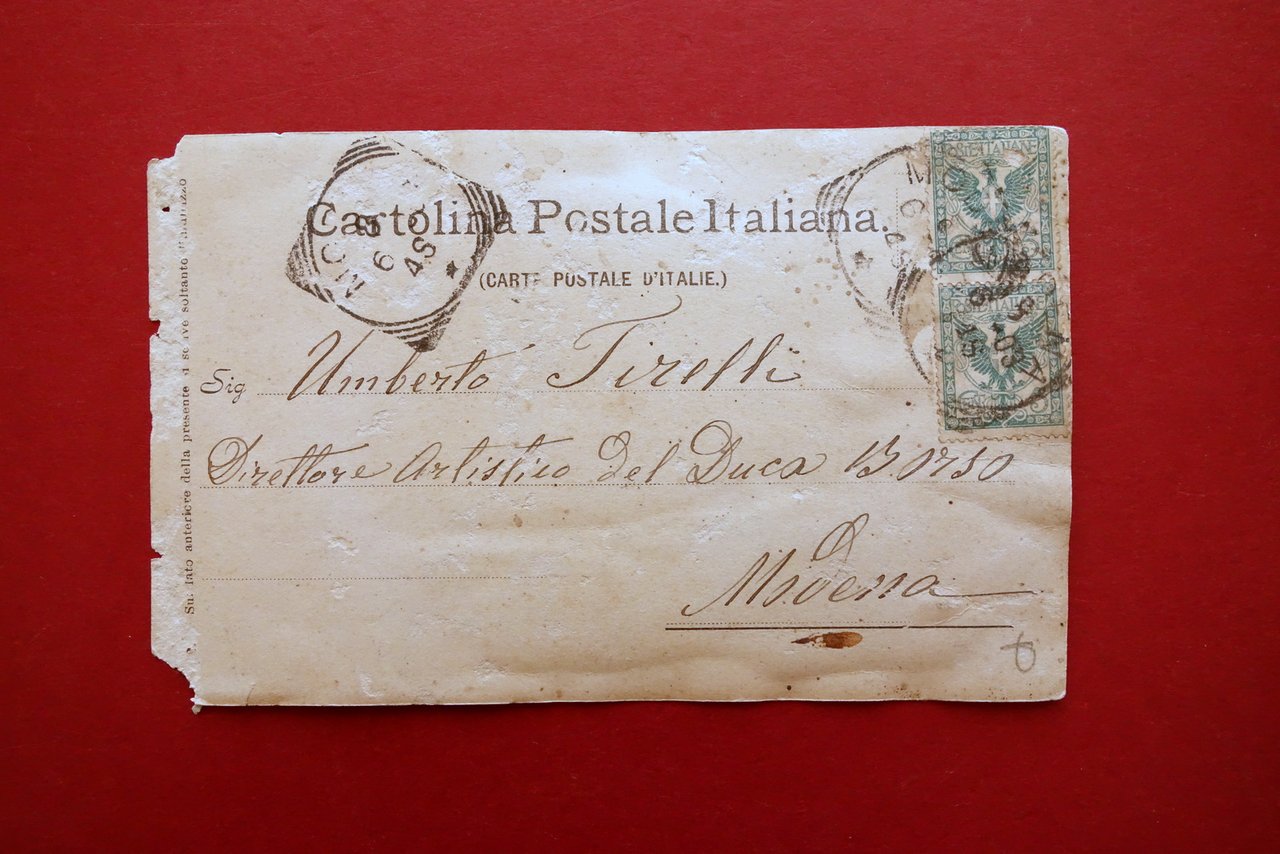 Cartolina Postale Italiana.
(CARTE POSTALE D'ITALIE.)
Sig Umberto Tirelli
Direttore Artistico del Duca Borso
Modena
Sul lato anteriore della presente si scrive soltanto l'indirizzo
POSTE ITALIANE